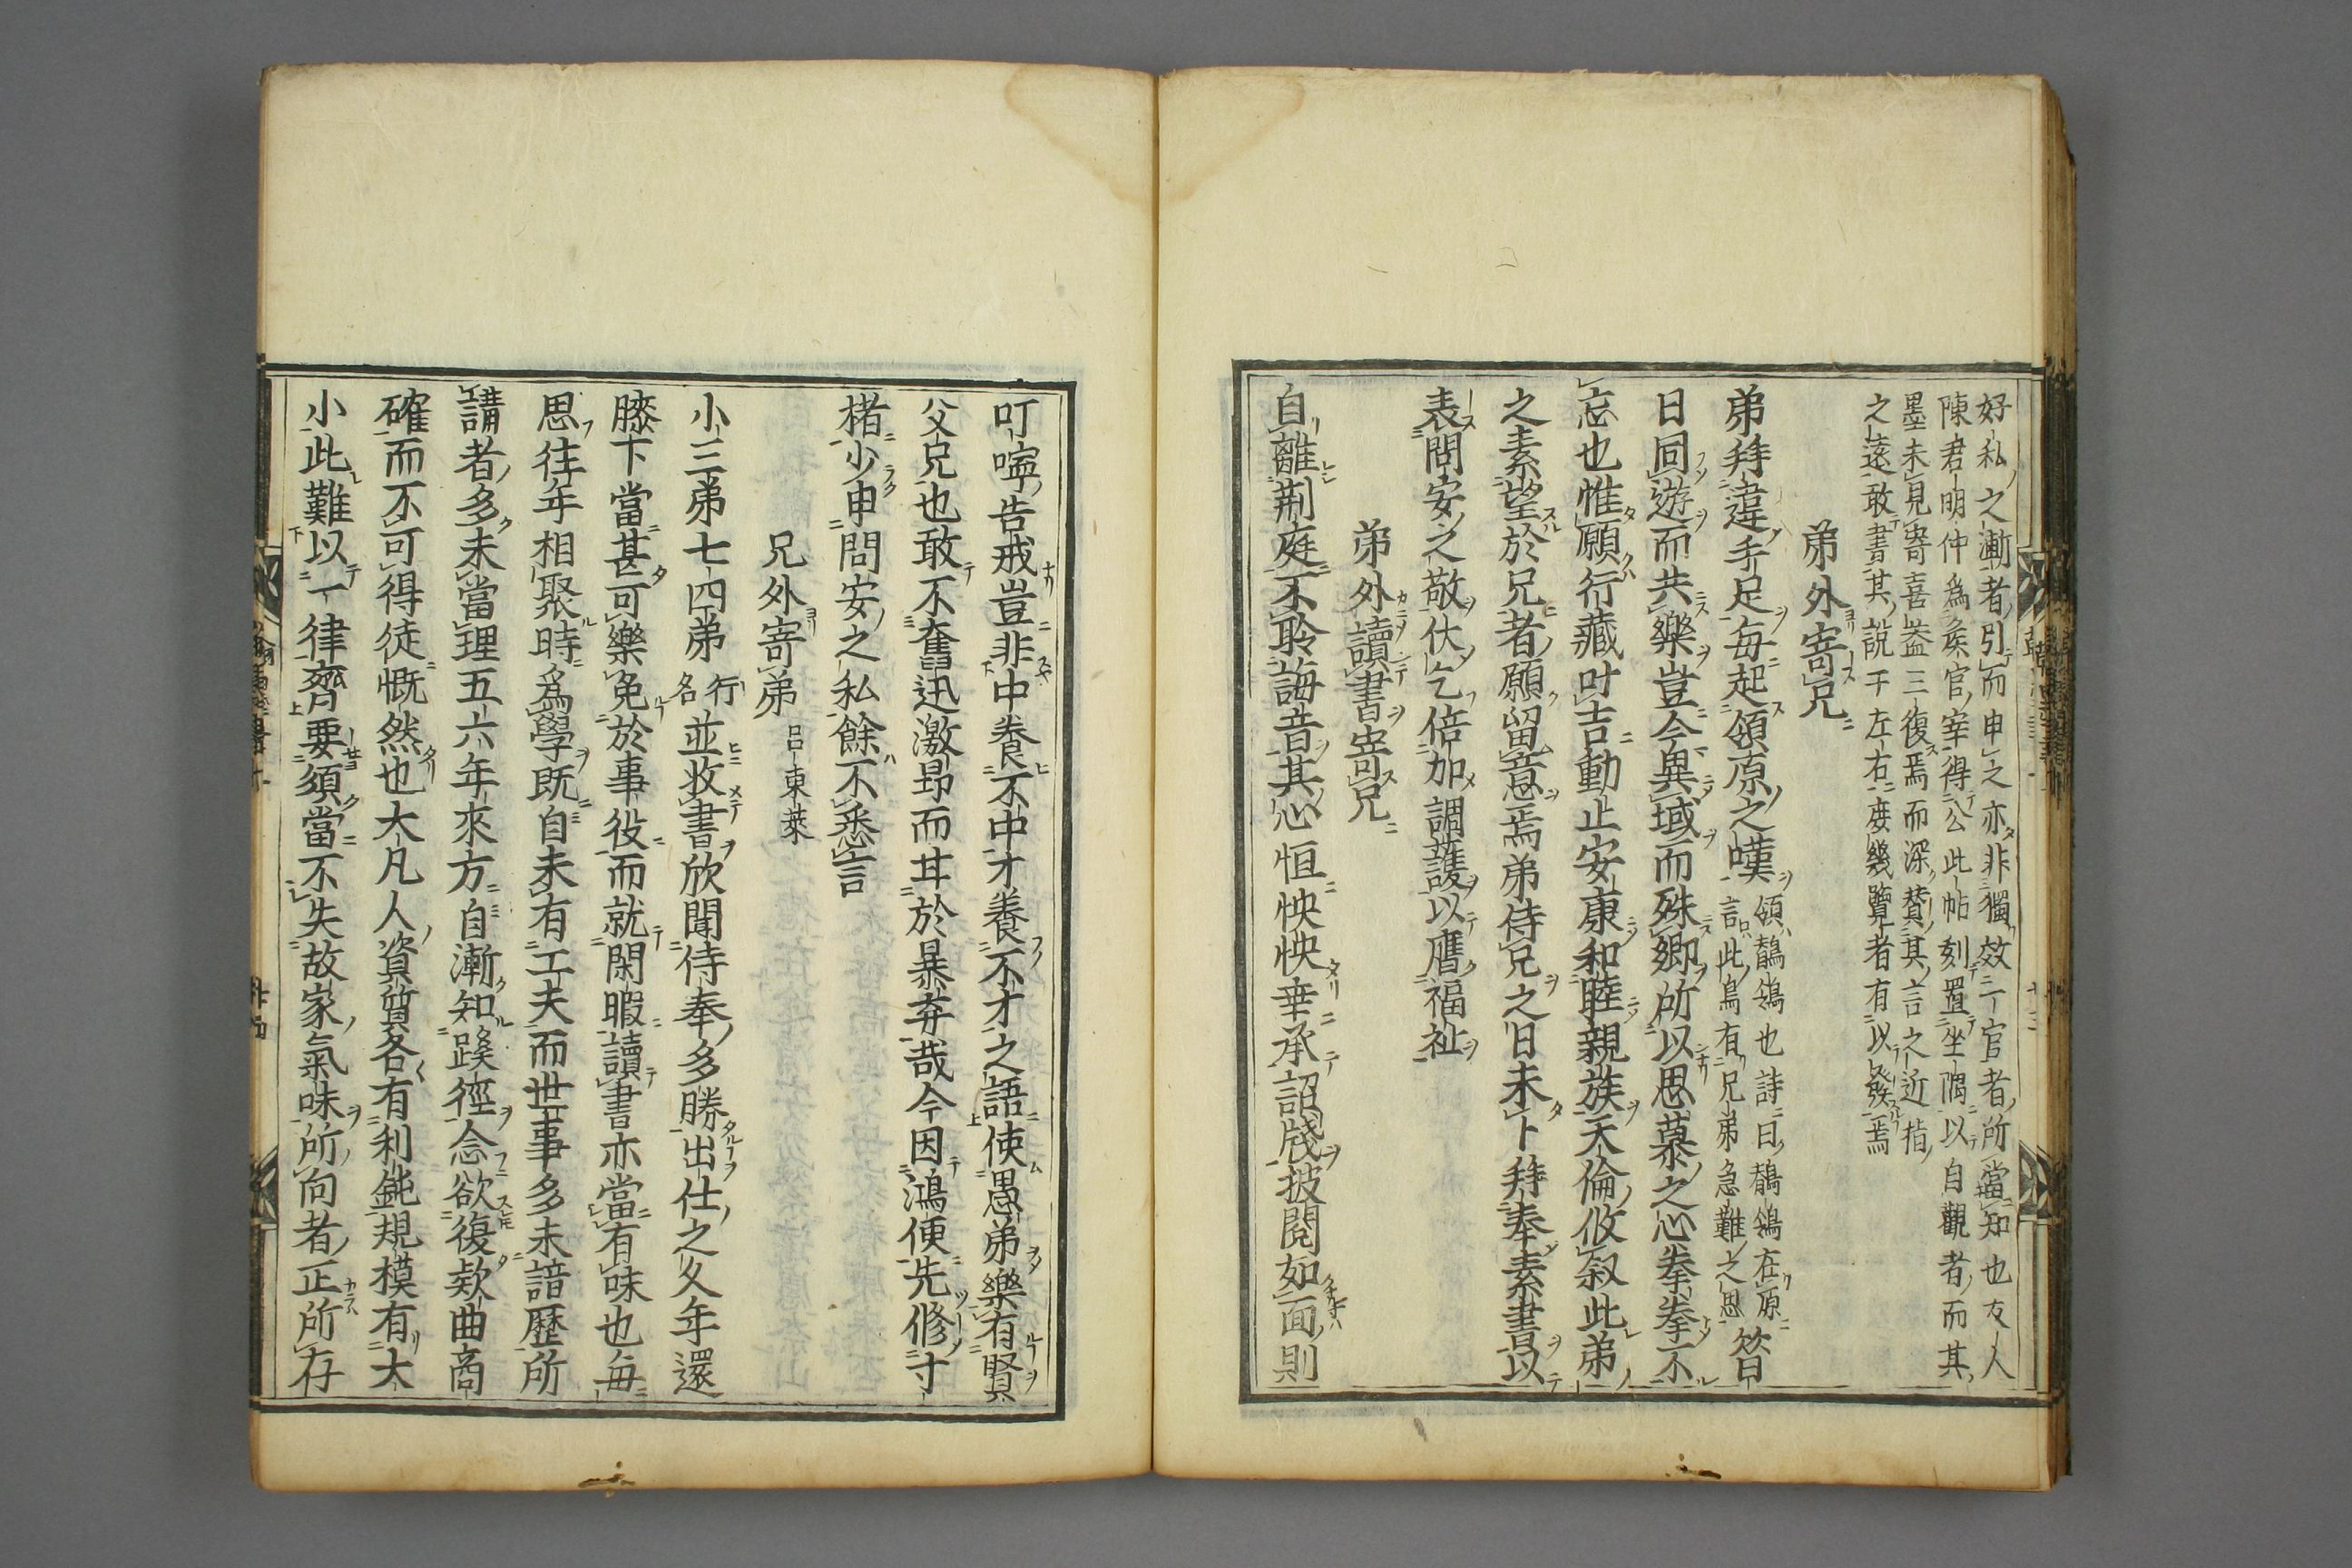 好私之漸者引而申之亦非獨效一官者所當知也友人
陳君明仲爲矦官宰得公此帖刻置坐隅以自觀者而其
墨未見寄喜益三復焉而深賛其言之近指
之遠敢書其說于左右庶幾覽者有以發焉
弟外寄兄
弟拜違手足每起領原之嘆
領鶺鴒也詩曰鶺鴒在原
言此鳥有兄弟急難之思
昝
日同遊而共樂豈今異域而殊鄉所以思慕之心拳拳不
忘也惟願行藏叶吉動止安康和睦親族天倫攸叙此弟
之素望於兄者願留意焉弟侍兄之日未卜拜奉素書以
表問安之敬伏乞倍加調護以膺福祉
弟外讀書寄兄
自離荆庭不聆誨音其心恒怏怏幸承詔牋披閱如面則
叮嚀告戒豈非中養不中才養不才之語使愚弟樂有賢
父兄也敢不奮迅激昻而甘於暴弃哉今因鴻便先修寸
楮少申問安之私餘不悉言
兄外寄弟 呂東萊
小三弟七四弟
行
名
並收書欣聞侍奉多勝出仕之久年還
膝下當甚可樂免於事役而就閑暇讀書亦當有味也每
思往年相聚時爲學既自未有工夫而世事多未諳歷所
講者多未當理五六年來方自漸知蹊徑念欲復欵曲商
確而不可得徒慨然也大凡人資質各有利鈍規模有大
小此難以一律齊要須當不失故家氣味所向者正所存